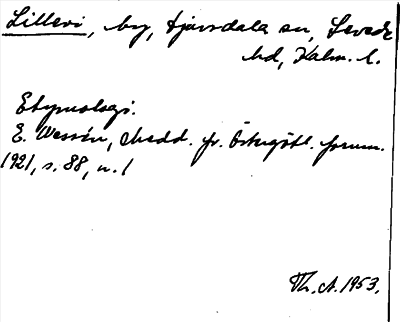 Lillevi, by, Djursdala sn, Sevede
hd, Kalm. l.
Etymologi.
E. Wessén, Medd. fr. Östergötl. fornm.
1921, s. 88, n. 1
Th. A. 1953.